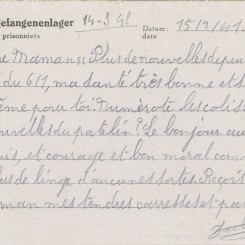 gefangenenlager 14-3-42 Datum: 15/2/42
prisonniers date
ne Maman. Plus de nouvelles depui
é du 6/1, ma santé très bonne et
ême pour toi. Numérote les colis
uvelles du patelin? Le bonjour au
uis, et courage et bon moral com
lus de linge d'aucunes sortes. Reçoit
man mes tendres carresses et pa